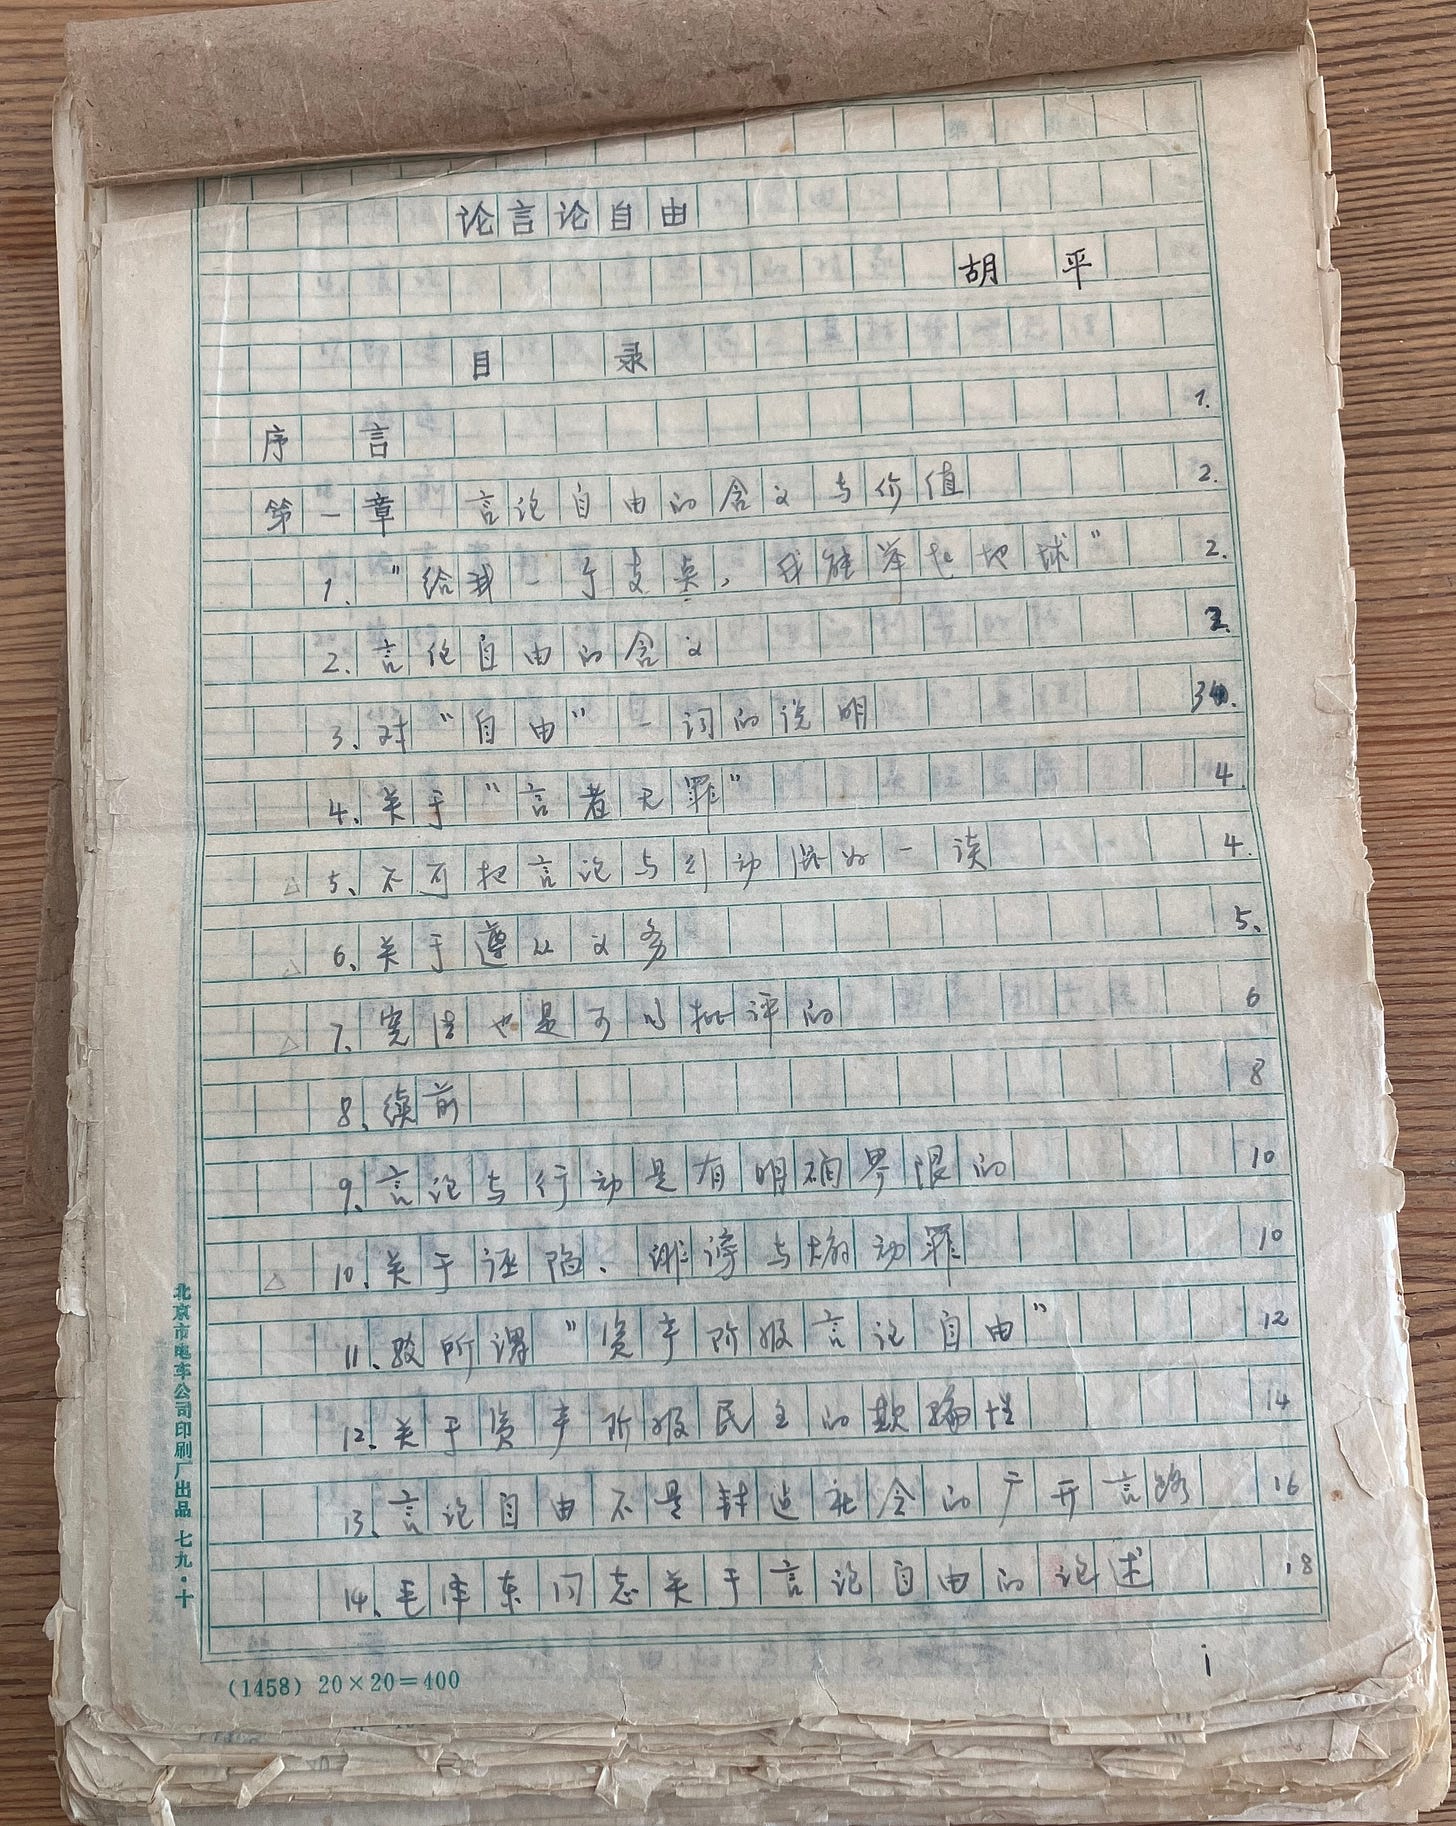 论言论自由
胡 平
目 录
序 言 1.
第一章 言论自由的含义与价值 2.
1. “给我一个支点，我能举起地球” 2.
2. 言论自由的含义 2.
3. 对“自由”一词的说明 3
4. 关于“言者无罪” 4
△ 5、不可把言论与行动混为一谈 4.
△ 6、关于遵从义务 5、
△ 7、宪法也是可以批评的 6
8、续前 8
9、言论与行动是有明确界限的 10
△ 10、关于诬陷、诽谤与煽动罪 10
11、驳所谓“资产阶级言论自由” 12
12、关于资产阶级民主的欺骗性 14
13、言论自由不是封建社会的广开言路 16
14、毛泽东同志关于言论自由的论述 18
i
(1458) 20×20=400
北京市电车公司印刷厂出品 七九·十